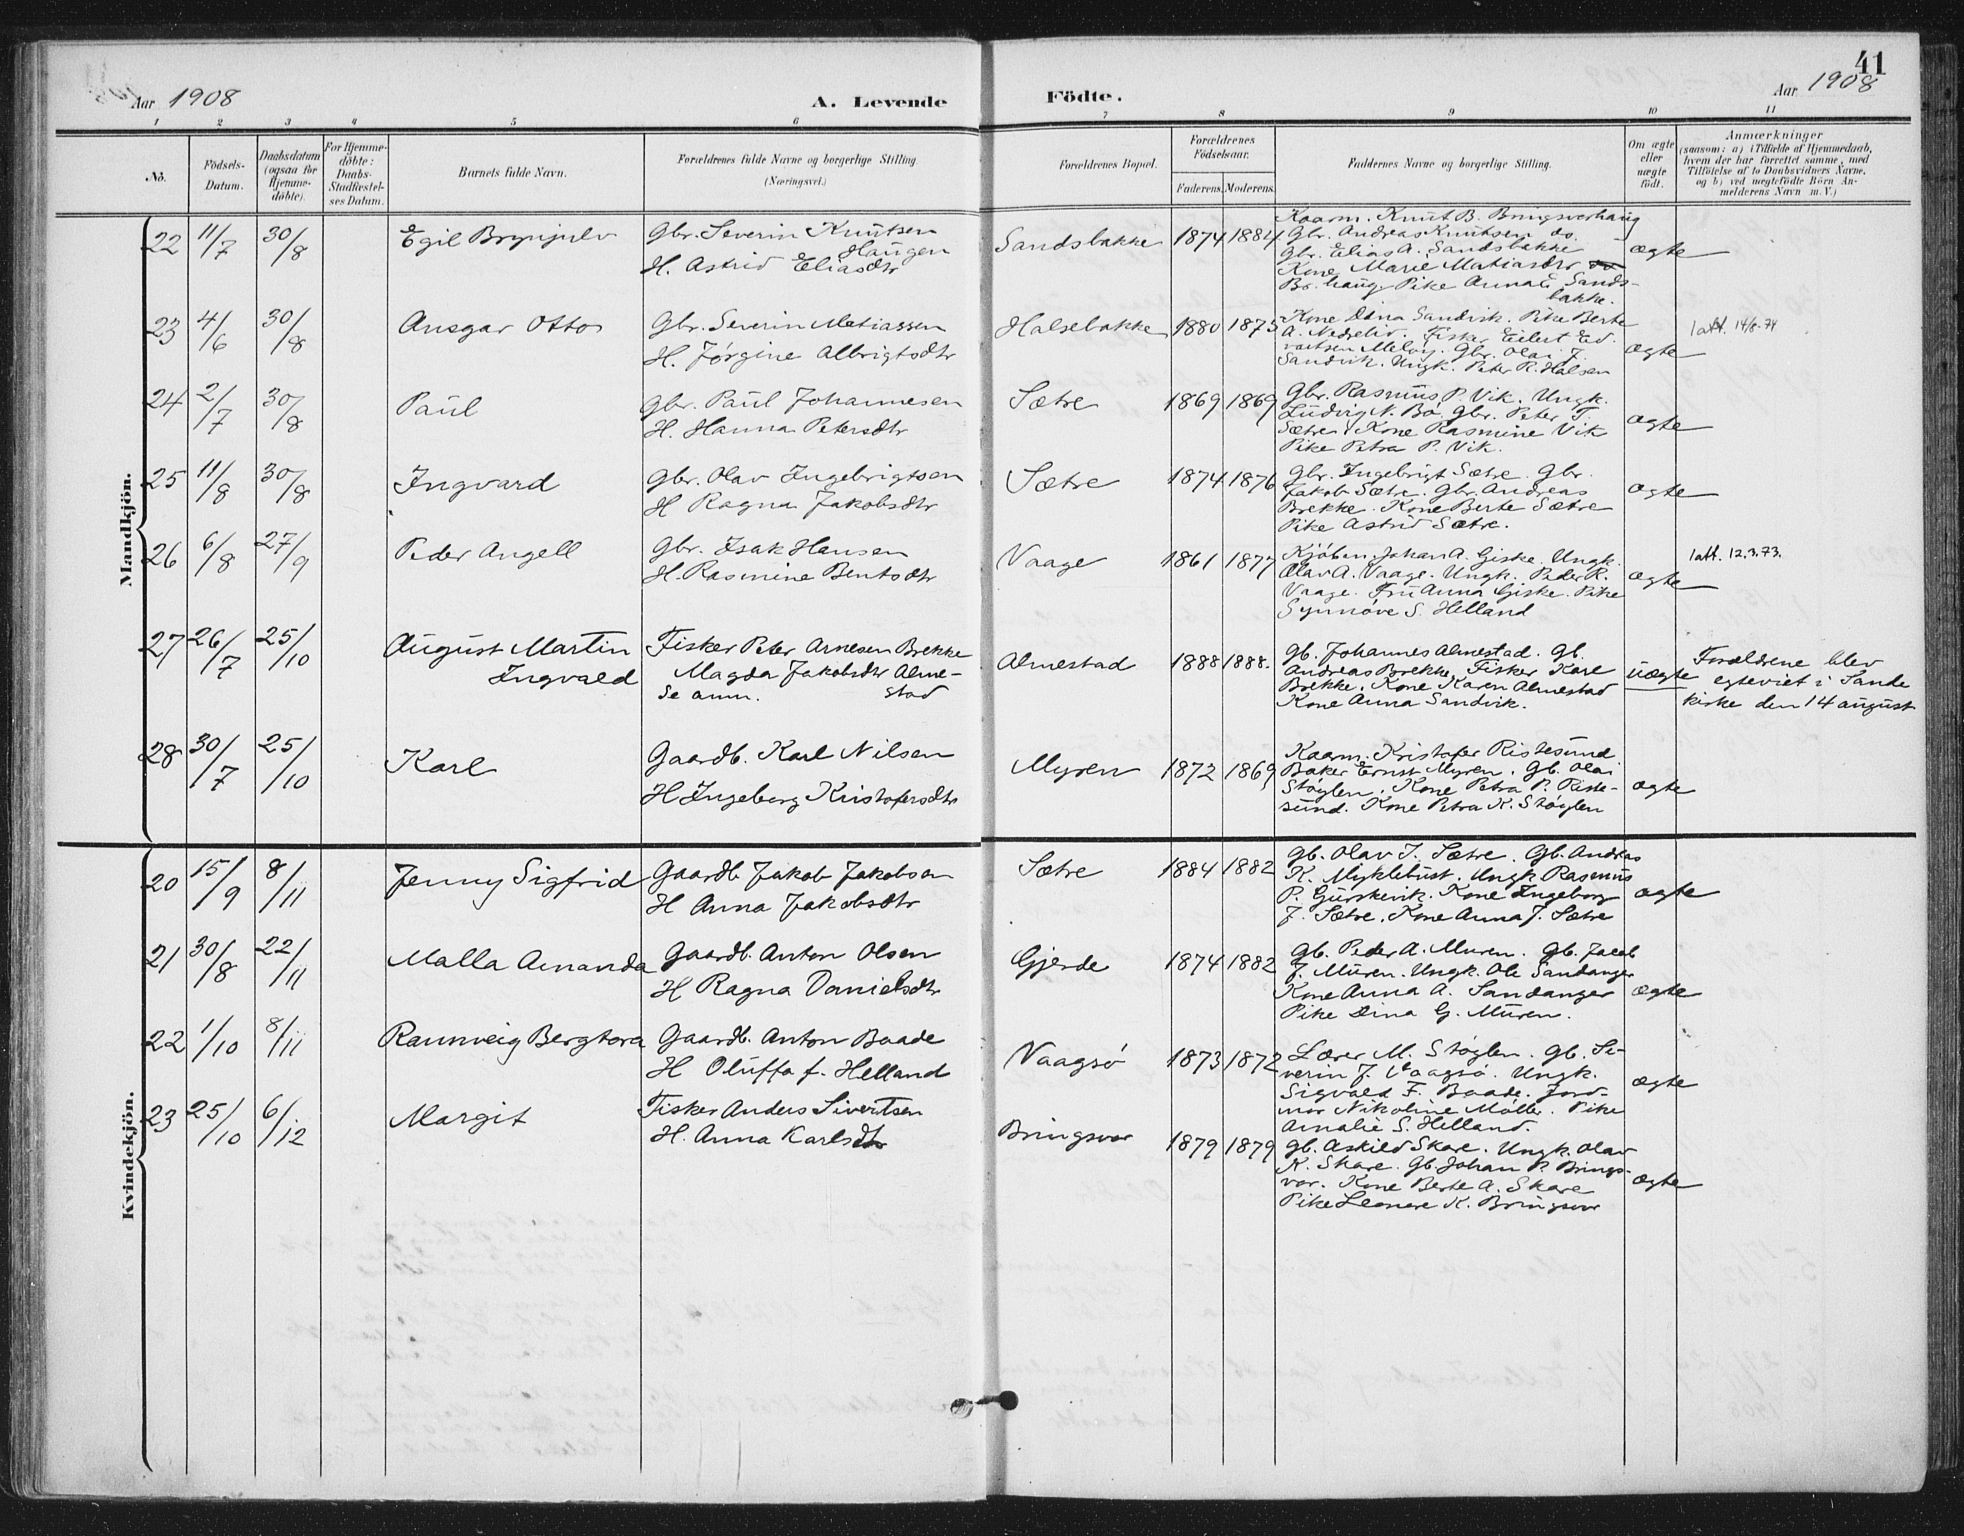 41
Aar 1908
A. Levende
Födte.
Aar 1908
1 2 3 4 5 6 7 8 9 10 11
No.
Födsels-
Datum.
Daabsdatum
(ogsaa for
Hjemme-
döbte).
For Hjemme-
döbte:
Daabs-
Stadfæstel-
ses Datum.
Barnets fulde Navn.
Forældrenes fulde Navne og borgerlige Stilling.
(Næringsvei.)
Forældrenes Bopæl.
Forældrenes
Födselsaar.
Faderens. Moderens.
Faddernes Navne og borgerlige Stilling.
Om ægte
eller
uægte
födt.
Anmærkninger
(saasom: a) i Tilfælde af Hjemmedaab,
hvem der har forrettet samme, med
Tilföielse af to Daabsvidners Navne,
og b) ved uegtefödte Börn An-
melderens Navn m. V.)
Mandkjön.
22 11/7 30/8 Egil Brynjulv
Gbr. Severin Knutsen
Haugen
H. Astrid Eliasdtr
Sandsbakke 1874 1884
Kaarm. Knut B. Bringsverhaug
Gbr. Andreas Knutsen ds.
Gbr. Elias A. Sandsbakke
Kone Marie Matiasdtr
Br. haug Pike Anna E. Sands-
bakke.
ægte
23 4/6 30/8 Ansgar Otto
Gbr. Severin Matiassen
H. Jørgine Albrigtsdtr
Halsebakke 1880 1875
Kone Dina Sandvik. Pike Berte
A. Nedrelid. Fisker Eilert Ed-
vartsen Meløy. Gbr. Olai J.
Sandvik. Ungk. Peter R. Halsen
ægte
1 att. 14/8-74
24 2/7 30/8 Paul
Gbr. Paul Johannesen
H. Hanna Petersdtr
Sætre 1869 1869
Gbr. Rasmus P. Vik. Ungk.
Ludvig N. Bø. Gbr. Peter T.
Sætre. Kone Rasmine Vik
Pike Petra P. Vik.
ægte
25 11/8 30/8 Ingvard
Gbr. Olav Ingebrigtsen
H Ragna Jakobsdtr
Sætre 1874 1876
Gbr. Ingebrigt Sætre. Gbr.
Jakob Sætre. Gbr. Andreas
Brekke. Kone Berte Sætre
Pike Astrid Sætre.
ægte
26 6/8 27/9 Peder Angell
Gbr. Isak Hansen
H. Rasmine Bentsdtr
Vaage 1861 1877
Kjøbm. Johan A. Giske. Ungk.
Olav A. Vaage. Ungk. Peder R.
Vaage. Fru Anna Giske. Pike
Synnøve S. Helland
ægte
1 att. 12.3.73.
27 26/7 25/10 August Martin
Ingvald
Fisker Peter Arnesen Brekke
Magda Jakobsdtr Alme-
stad
Se anm.
Almestad 1888 1888.
Gb. Johannes Almestad. Gb.
Andreas Brekke. Fisker Karl
Brekke. Kone Karen Almestad
Kone Anna Sandvik.
uægte
Forældrene blev
egteviet i Sande
kirke den 14 august
28 30/7 25/10 Karl
Gaardb. Karl Nilsen
H Ingeborg Kristofersdtr
Myren 1872 1869
Kaarm. Kristofer Ristesund
Baker Ernst Myren. Gb. Olai
Støylen. Kone Petra P. Riste-
sund. Kone Petra K. Støylen
ægte
Kvindekjön.
20 15/9 8/11 Jenny Sigfrid
Gaardb Jakob Jakobsen
H Anna Jakobsdtr
Sætre 1884 1882
Gb. Olav J. Sætre. Gb. Andreas
K. Myklebust. Ungk Rasmus
P. Gurskevik. Kone Ingeborg
J. Sætre. Kone Anna J. Sætre
ægte
21 30/8 22/11 Malla Amanda
Gaardb. Anton Olsen
H Ragna Danielsdtr
Gjerde 1874 1882
Gb. Peder A. Muren. Gb. Jacob
J. Muren. Ungk. Ole Sandanger
Kone Anna A. Sandanger
Pike Dina G. Muren.
ægte
22 1/10 8/11 Raunveig Bergtora
Gaardb. Anton Baade
H Oluffa f. Helland
Vaagsø 1873 1872
Lærer M. Støylen. Gb. Se-
verin J. Vaagsø. Ungk.
Sigvald F. Baade. Jord-
mor Nikoline Møller. Pike
Amalie S. Helland.
ægte
23 25/10 6/12 Margit
Fisker Anders Sivertsen
H. Anna Karlsdtr
Bringsvor 1879 1879
Gb. Askild Skare. Ungk. Olav
K. Skare. Gb. Johan P. Brings-
vor. Kone Berte A. Skare
Pike Leonare K. Bringsvor
ægte